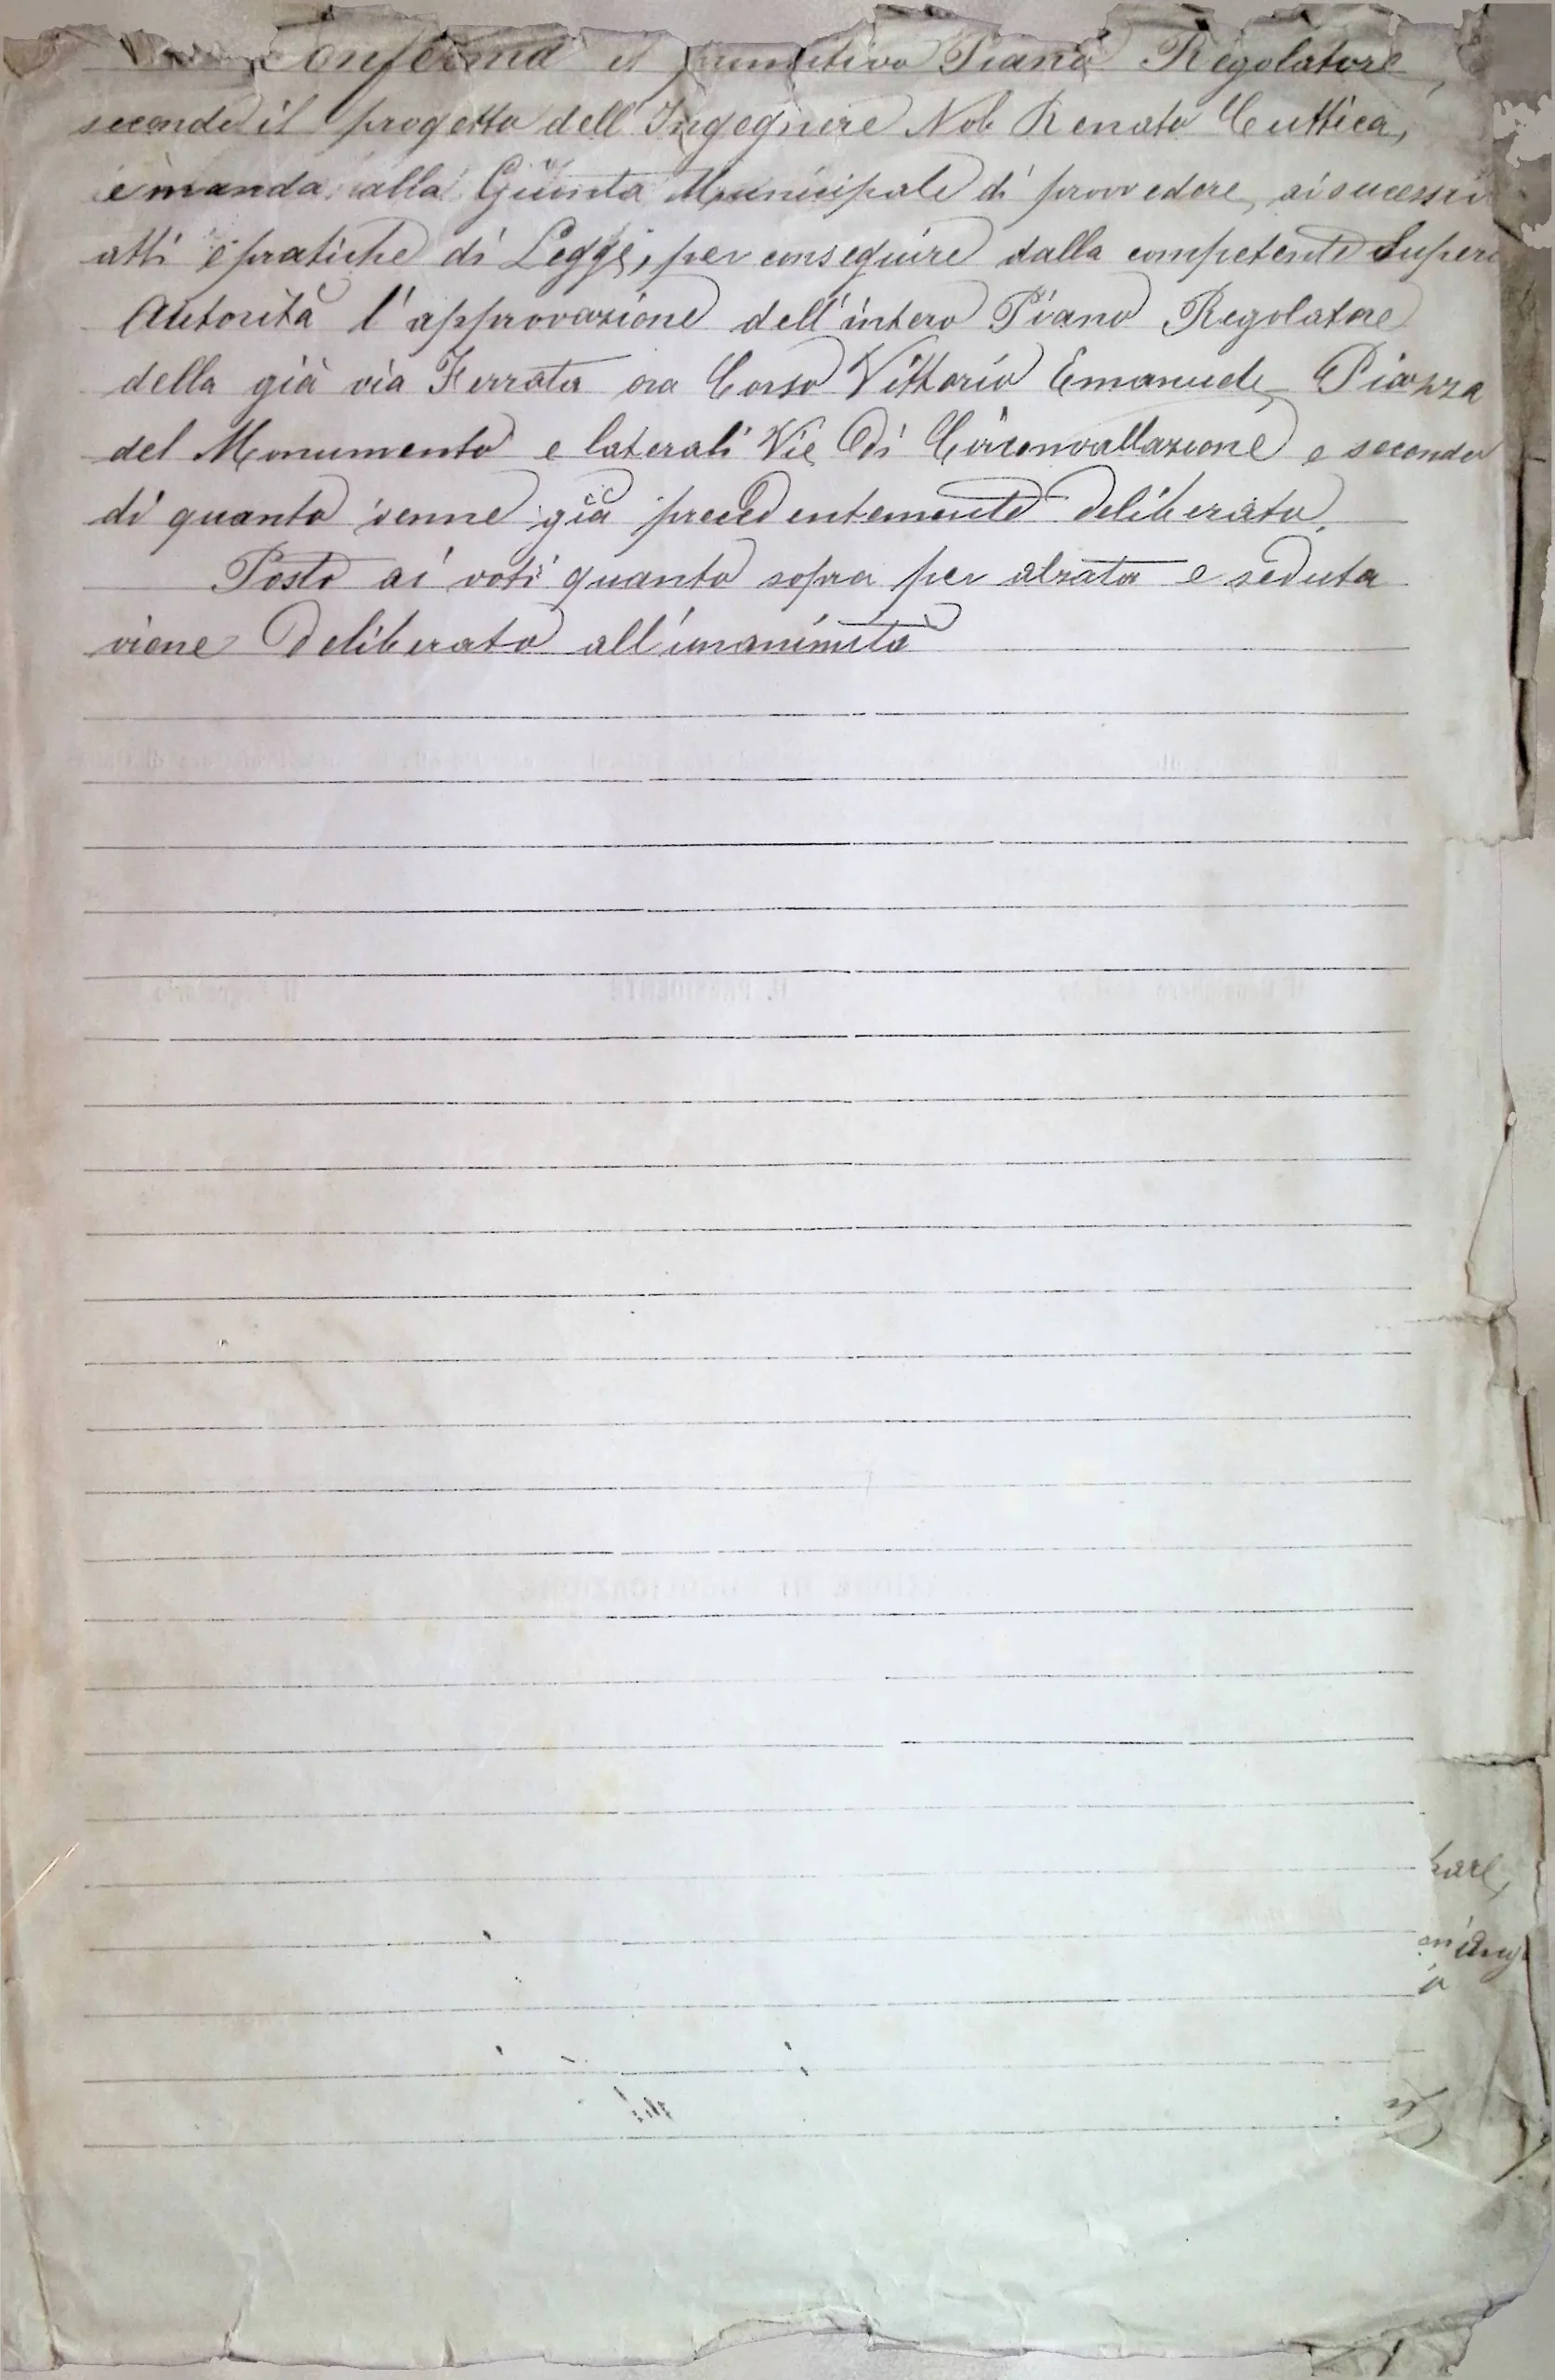 Conferma il primitivo Piano Regolatore
secondo il progetto dell'Ingegnere Nob Renato Cuttica,
e manda alla Giunta Municipale di provvedere, ai sucessivi
atti e pratiche di Legge, per conseguire dalla competente Super
Autorità l'approvazione dell'intero Piano Regolatore
della già via Ferrata ora Corso Vittorio Emanuele, Piazza
del Monumento e laterali Vie Di Circonvallazione e secondo
di quanto venne già precedentemente deliberato.
Posto ai voti quanto sopra per alzata e seduta
viene Deliberato all'unanimità